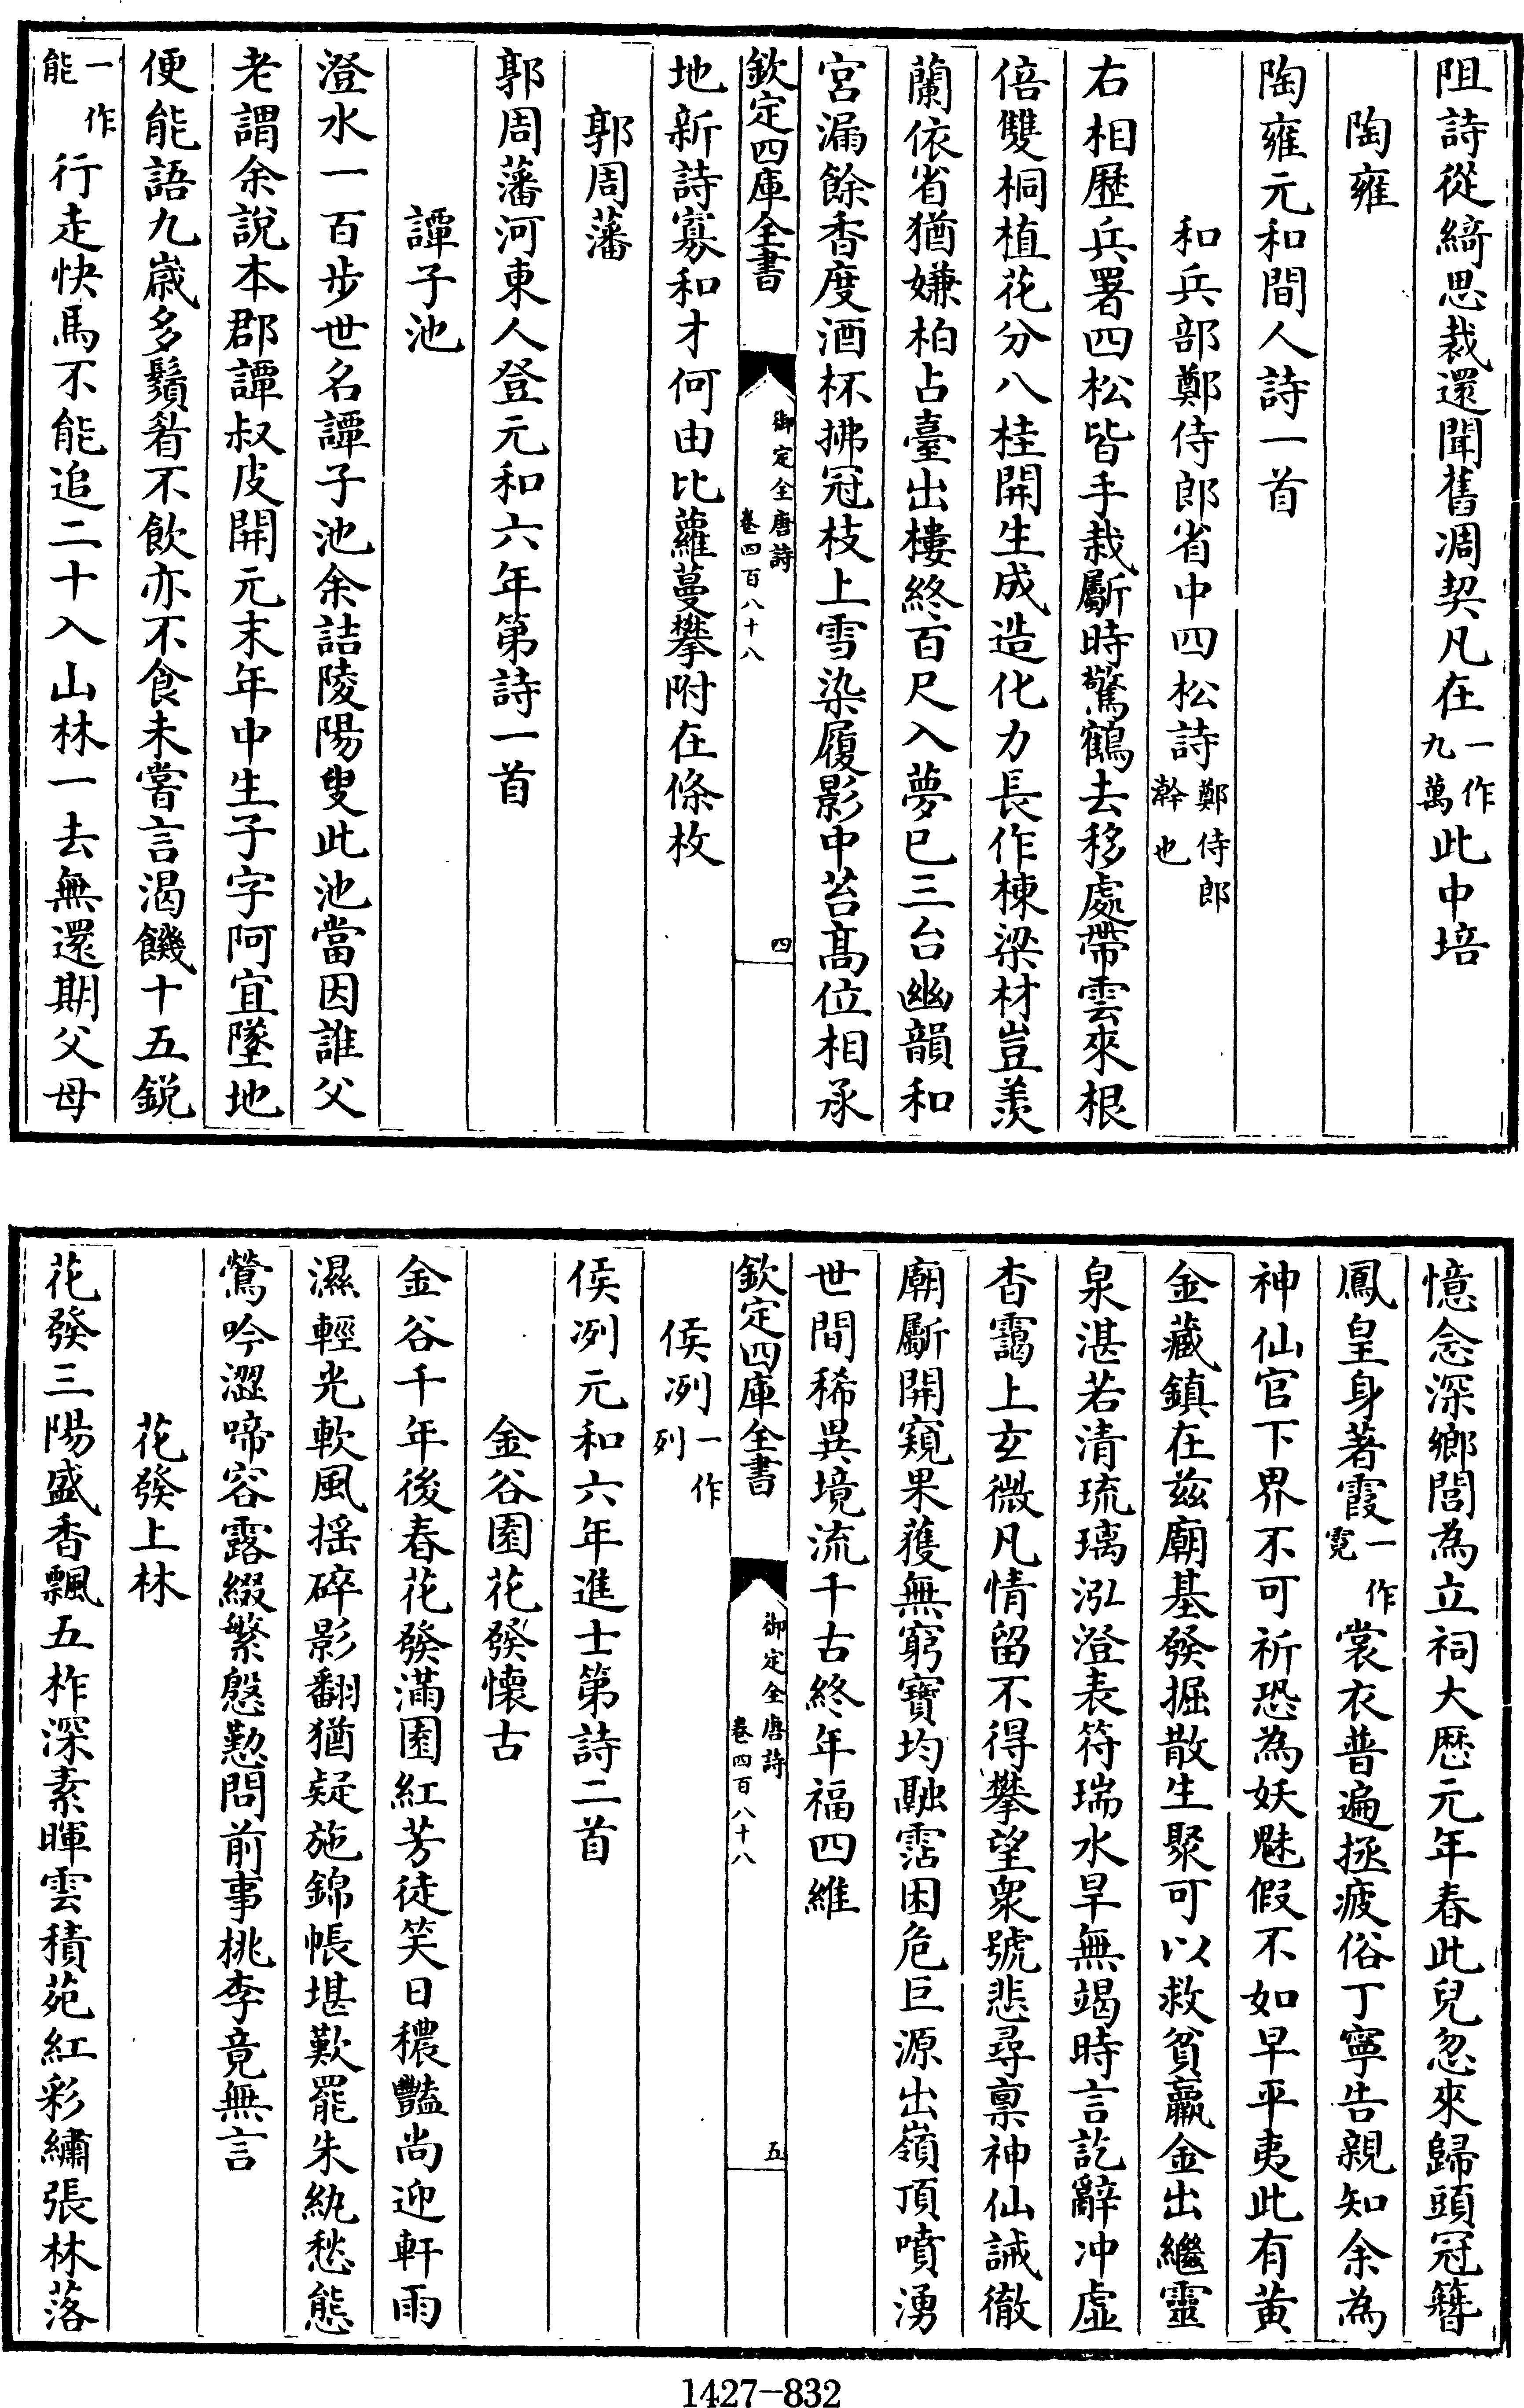 阻詩從綺思裁還聞舊凋契凡在一作九萬此中培
陶雍
陶雍元和間人詩一首
和兵部鄭侍郎省中四松詩鄭侍郎澣也
右相歷兵署四松皆手栽斸時驚鶴去移處帶雲來根
倍雙桐植花分八桂開生成造化力長作棟梁材豈羨
蘭依省猶嫌柏占臺出樓終百尺入夢已三台幽韻和
宮漏餘香度酒杯拂冠枝上雪染履影中苔髙位相承
欽定四庫全書
御定全唐詩
卷四百八十八
四
地新詩寡和才何由比蘿蔓攀附在條枚
郭周藩
郭周藩河東人登元和六年第詩一首
譚子池
澄水一百步世名譚子池余詰陵陽叟此池當因誰父
老謂余說本郡譚叔皮開元末年中生子字阿宜墜地
便能語九歲多鬚眉不飲亦不食未嘗言渴饑十五銳
一作能行走快馬不能追二十入山林一去無還期父母
憶念深鄉閭為立祠大歷元年春此兒忽來歸頭冠簪
鳳皇身著霞一作霓裳衣普遍拯疲俗丁寧告親知余為
神仙官下界不可祈恐為妖魅假不如早平夷此有黃
金藏鎮在兹廟基發掘散生聚可以救貧羸金出繼靈
泉湛若清琉璃泓澄表符瑞水旱無竭時言訖辭冲虛
杳靄上玄微凡情留不得攀望衆號悲尋禀神仙誡徹
廟斸開窺果獲無窮寶均融霑困危巨源出嶺頂噴湧
世間稀異境流千古終年福四維
欽定四庫全書
御定全唐詩
卷四百八十八
五
侯冽一作列
侯冽元和六年進士第詩二首
金谷園花發懷古
金谷千年後春花發滿園紅芳徒笑日穠豔尚迎軒雨
濕輕光軟風揺碎影翻猶疑施錦帳堪歎罷朱紈愁態
鶯吟澀啼容露綴繁慇懃問前事桃李竟無言
花發上林
花發三陽盛香飄五柞深素暉雲積苑紅彩繡張林落
1427-832